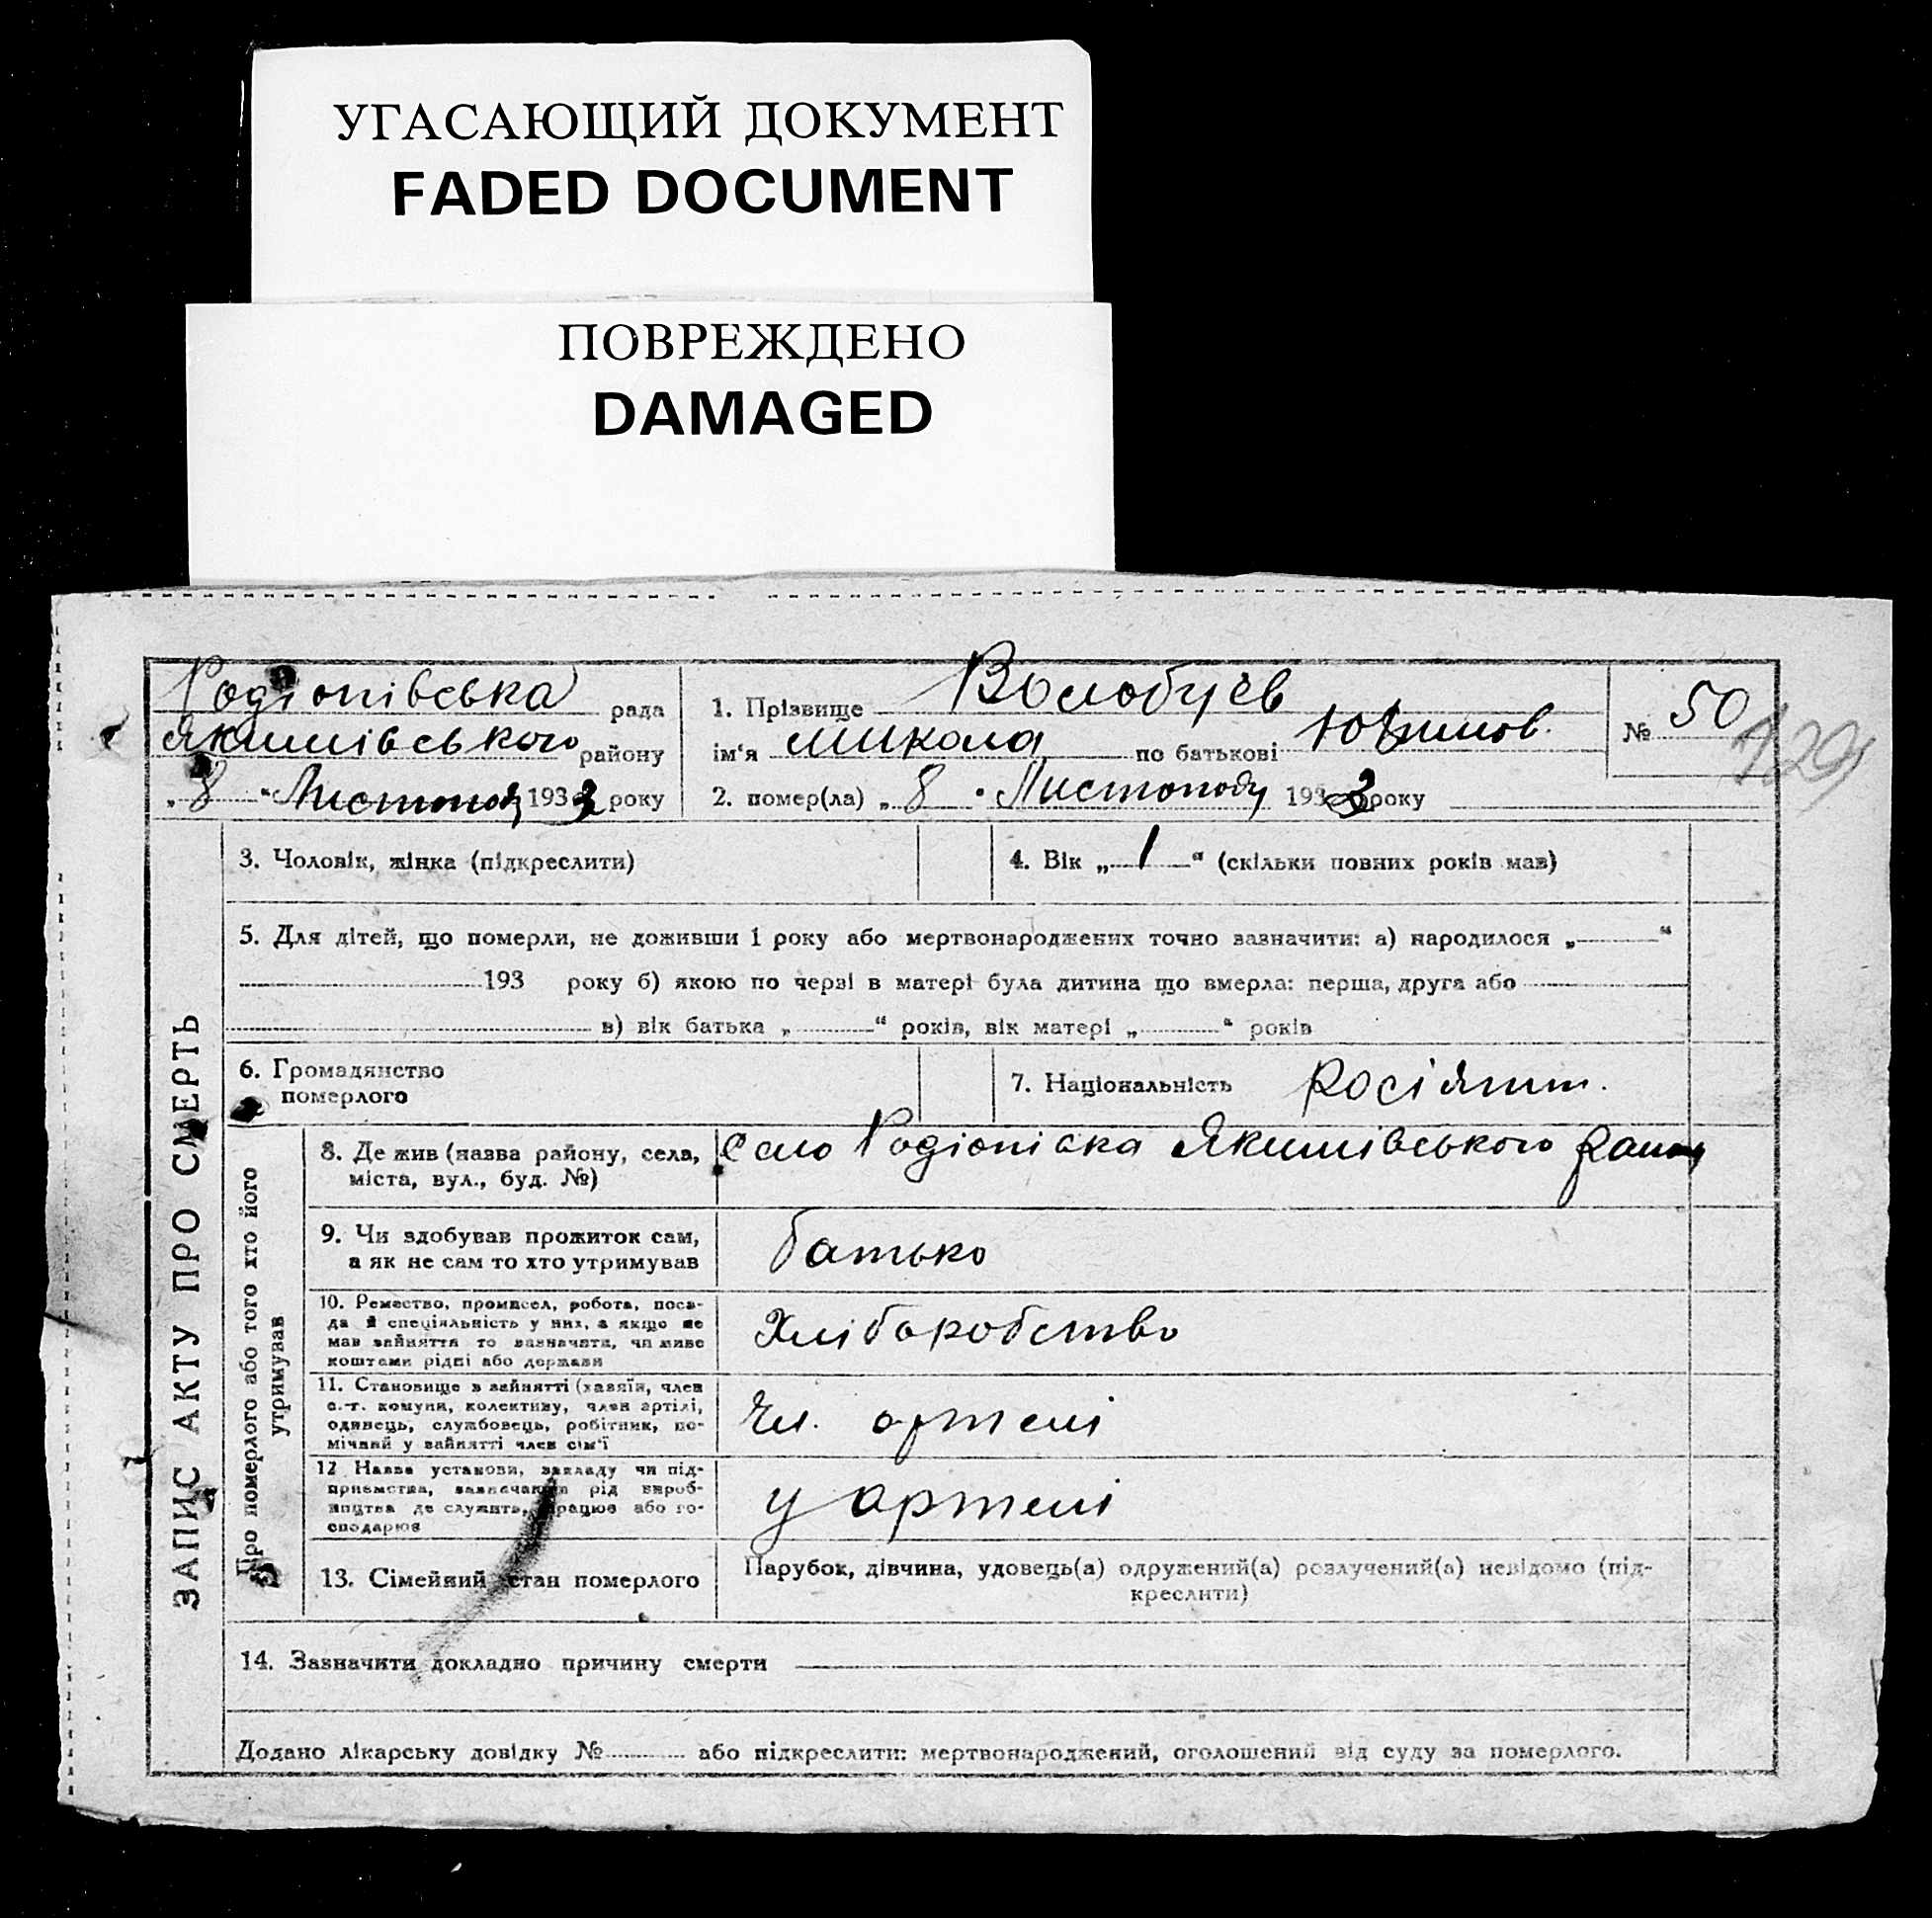 УГАСАЮЩИЙ ДОКУМЕНТ
FADED DOCUMENT
ПОВРЕЖДЕНО
DAMAGED
Родіонівська рада
Якимівського району
„ 8 “ Листопада 1933 року
1. Прізвище Волобуєв
ім‘я Микола по батькові
2. помер(ла) „ 8 “ Листопада 1933 року
№ 50
129
ЗАПИС АКТУ ПРО СМЕРТЬ
3. Чоловік, жінка (підкреслити)
4. Вік „ 1 “ (скільки повних років мав)
5. Для дітей, що померли, не доживши 1 року або мертвонароджених точно зазначити: а) народилося „ “
193 року б) якою по черзі в матері була дитина що вмерла: перша, друга або
в) вік батька „ “ років, вік матері „ “ років
6. Громадянство
померлого
7. Національність росіянин.
Про померлого або того хто його
утримував
8. Де жив (назва району, села,
міста, вул., буд. №)
Село Родіонівка Якимівського району
9. Чи здобував прожиток сам,
а як не сам то хто утримував
батько
10. Ремество, промисел, робота, поса-
да й спеціяльність у них, а якщо не
мав зайняття то зазначити, чи живе
коштами рідні або держави
Хліборобство
11. Становище в зайнятті (хазяїн, член
с.-г. комуни, колективу, член артілі,
одинець, службовець, робітник, по-
мічний у зайнятті член сім‘ї
Чл. артелі
12 Назва установи, закладу чи під-
приємства, зазначаючи рід вироб-
ництва де служить, працює або го-
сподарює
у артелі
13. Сімейний стан померлого
Парубок, дівчина, удовець(а) одружений(а) розлучений(а) невідомо (під-
креслити)
14. Зазначити докладно причину смерти
Додано лікарську довідку № або підкреслити: мертвонароджений, оголошений від суду за померлого.